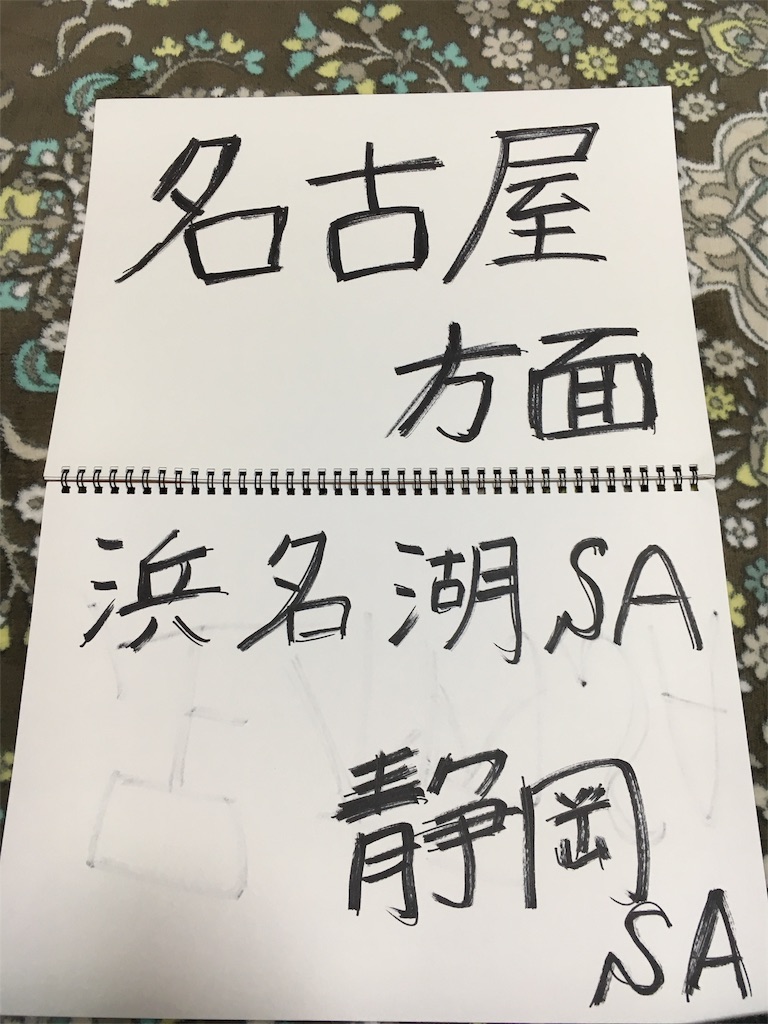 名古屋
方面
浜名湖SA
静岡
SA